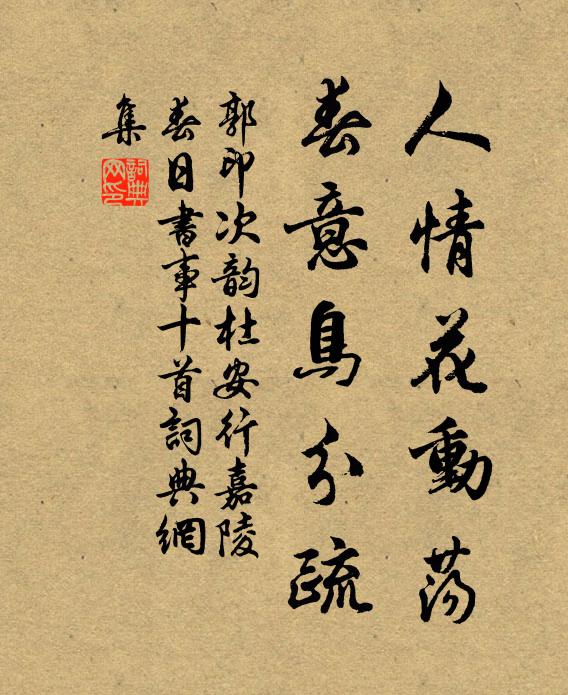 人情花動荡
春意鳥分疏
郭印次韵杜安行嘉陵
春日書事十首詞典網
集
詞典
网印